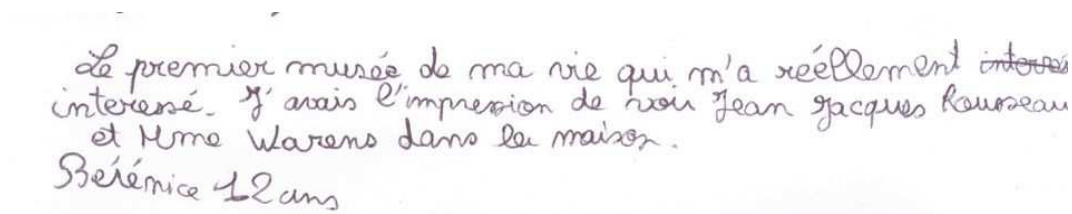 Le premier musée de ma vie qui m'a réellement interes
interessé. J'avais l'impression de voir Jean Jacques Rousseau
et Mme Warens dans la maison.
Bérénice 12 ans